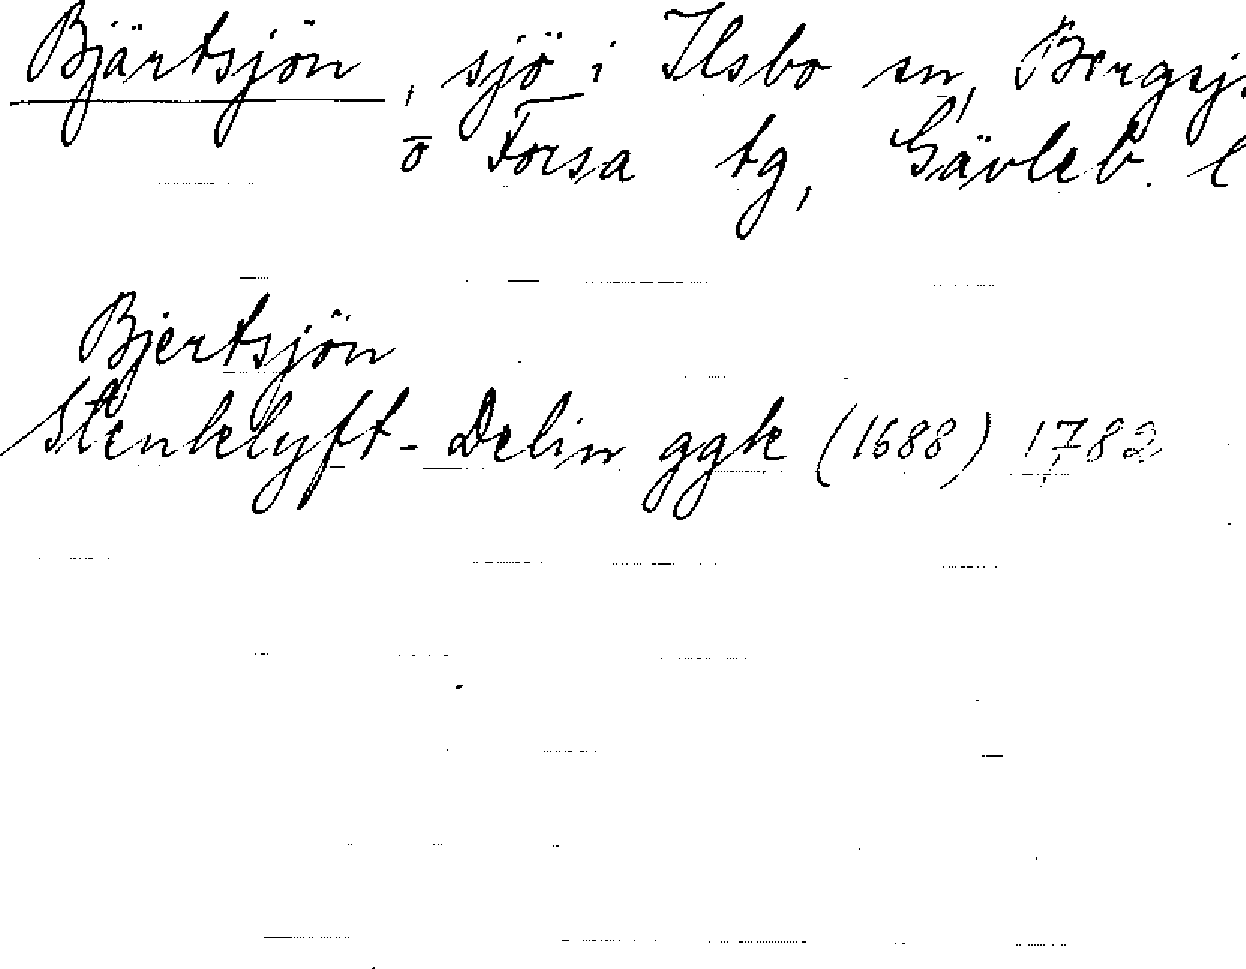 Bjärtsjön, sjö i Ilsbo sn, Bergsj.
o Forsa tg, Gävleb. l
Bjertsjön
Stenklyft- Delin ggk (1688) 1782